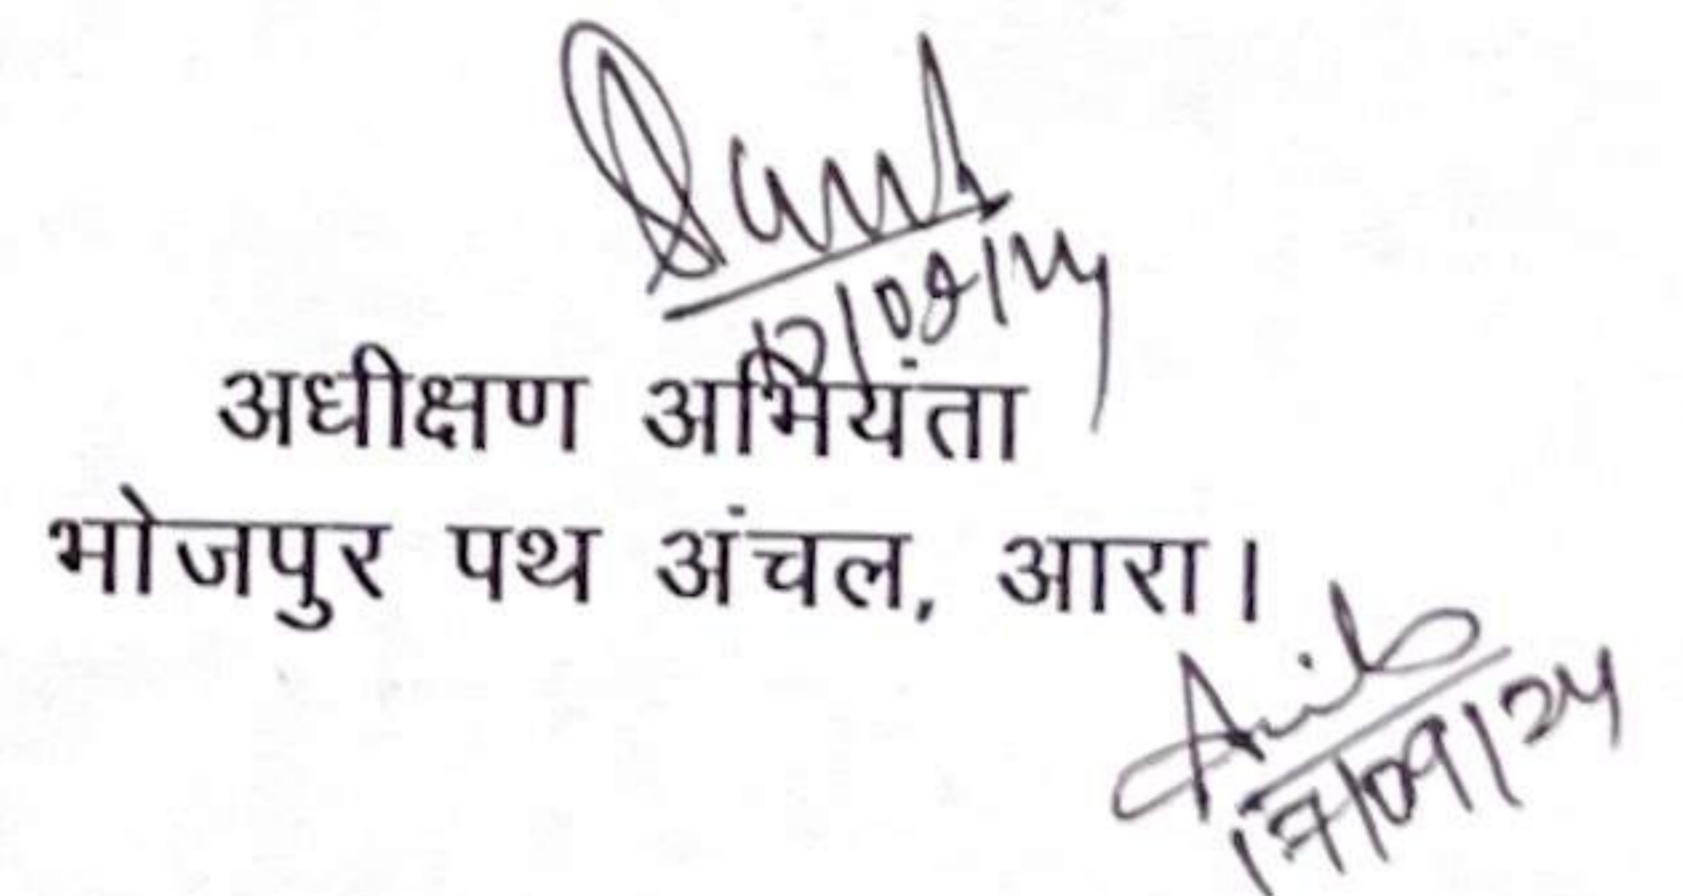 अधीक्षण अभियंता
भोजपुर पथ अंचल, आरा।
Anil
17/09/24